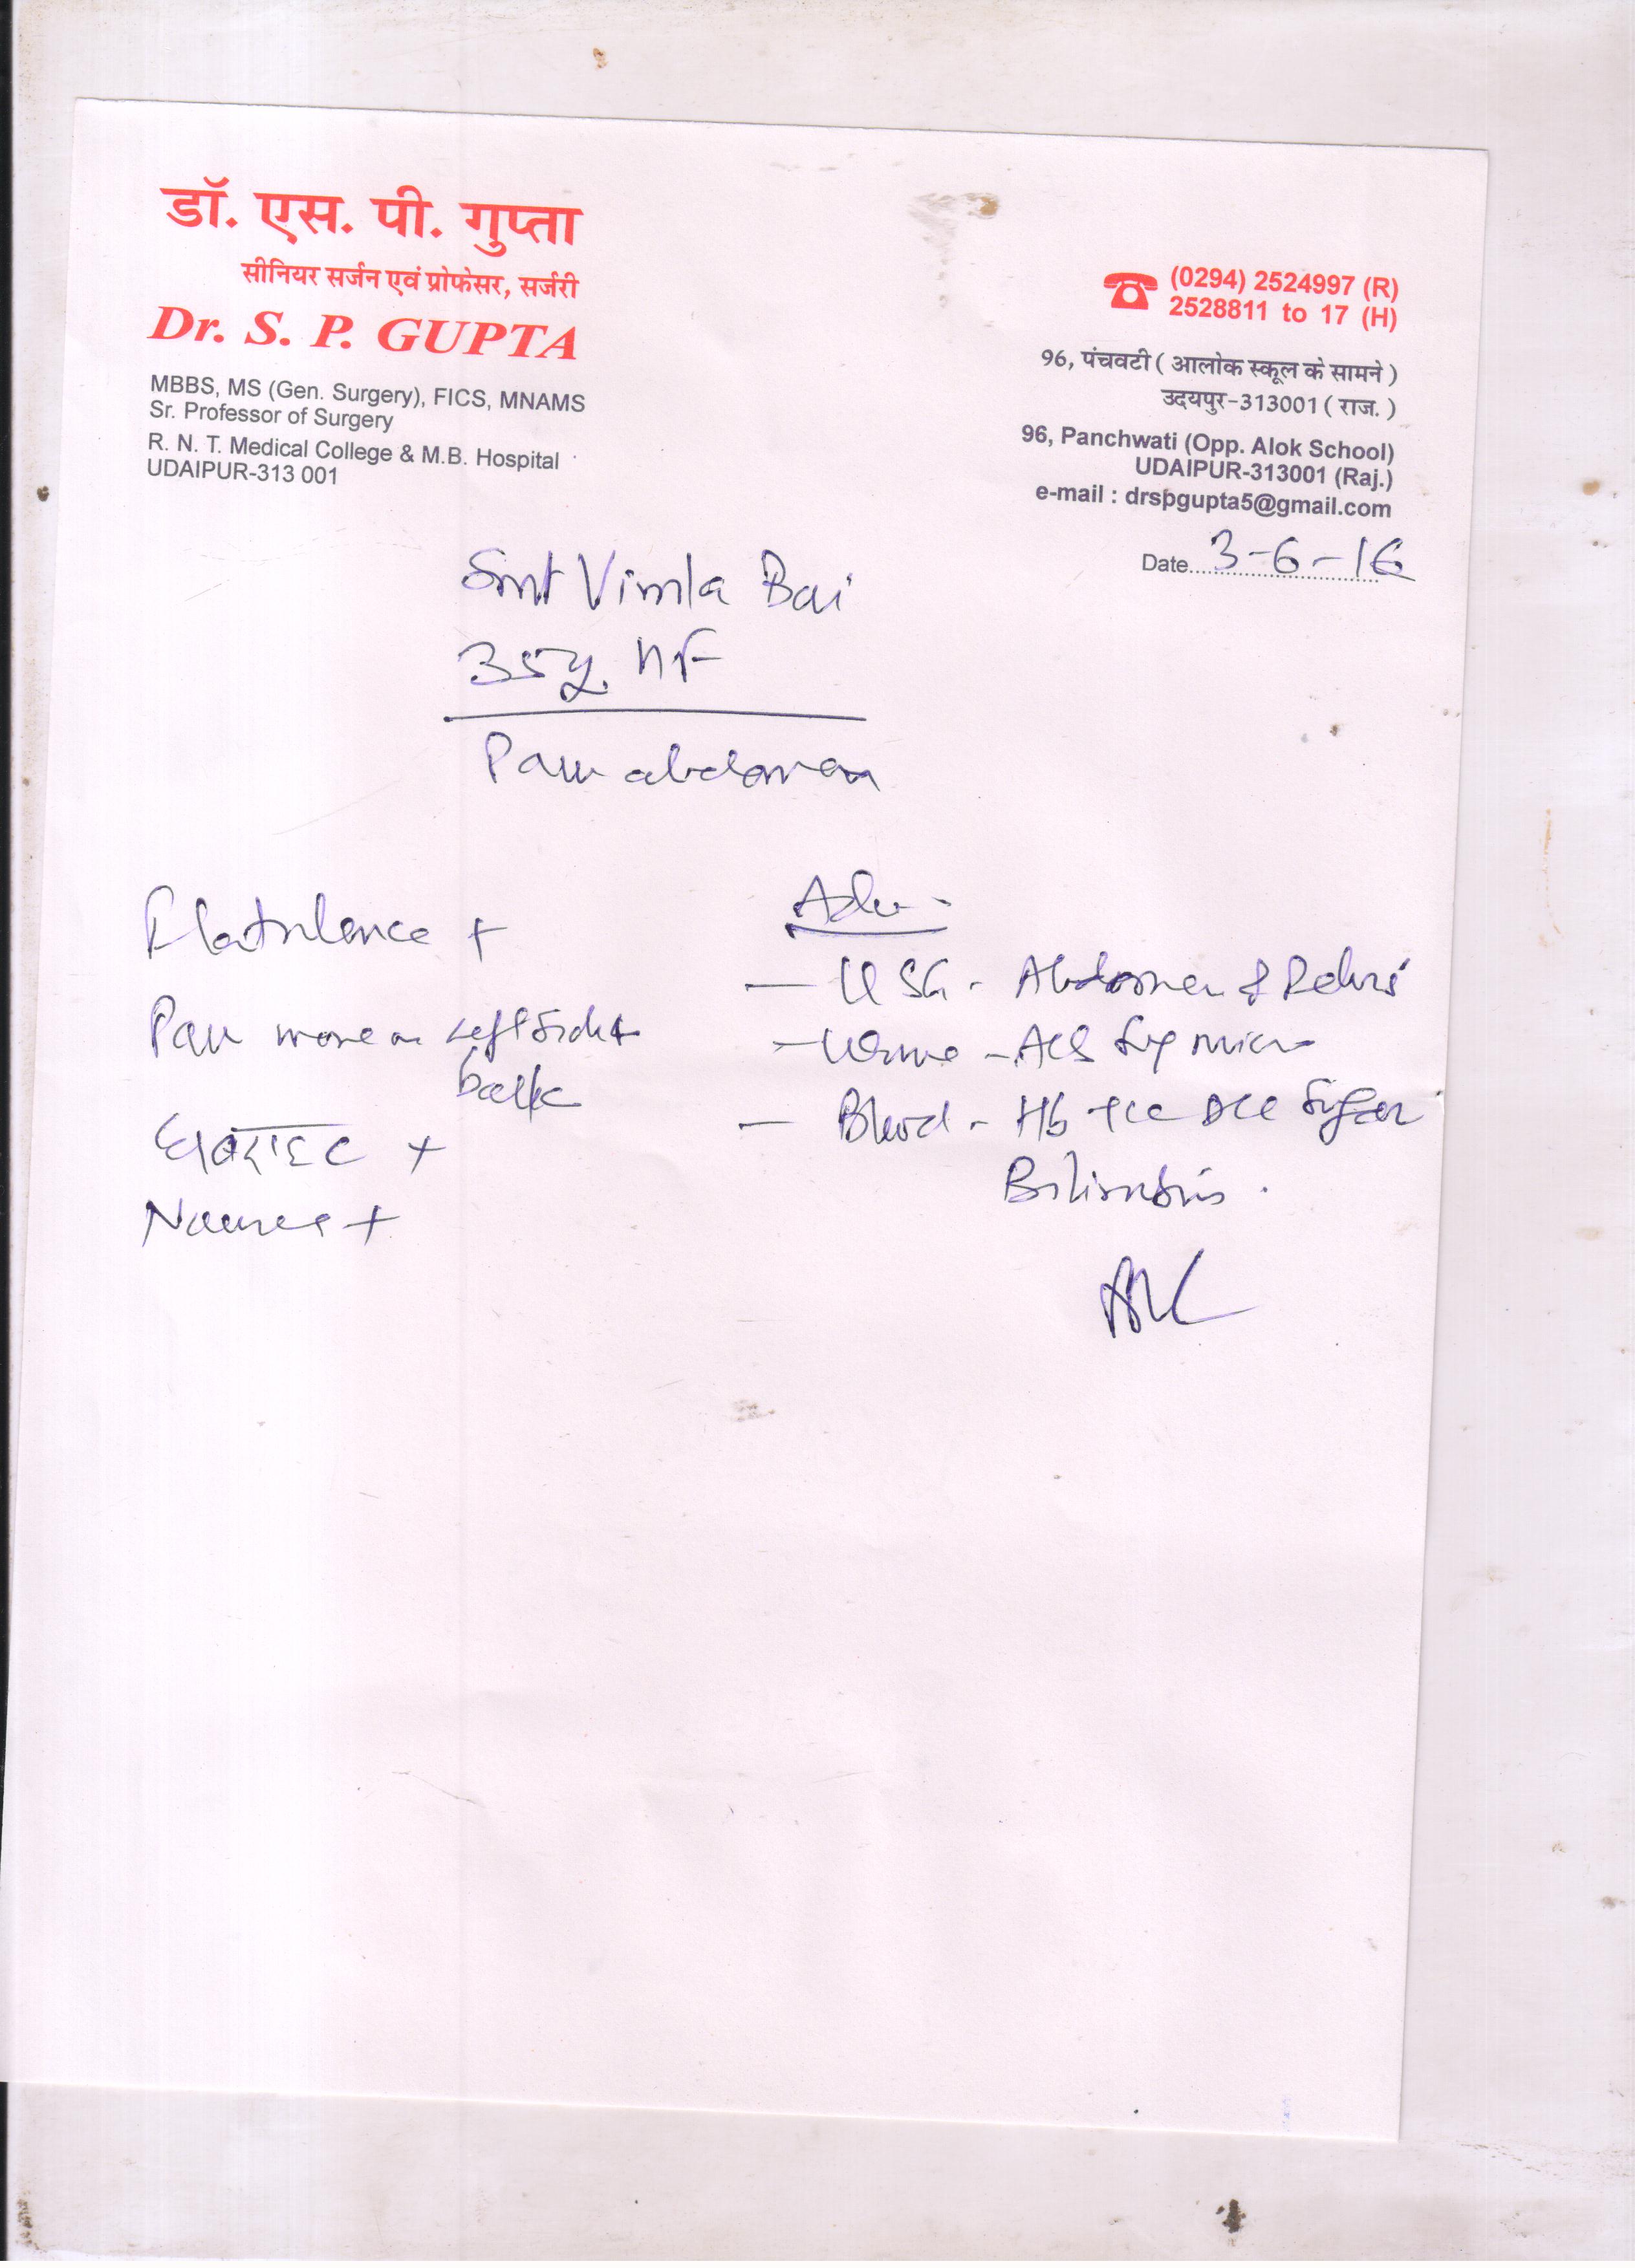 डॉ. एस. पी. गुप्ता
सीनियर सर्जन एवं प्रोफेसर, सर्जरी
Dr. S. P. GUPTA
MBBS, MS (Gen. Surgery), FICS, MNAMS
Sr. Professor of Surgery
R. N. T. Medical College & M.B. Hospital
UDAIPUR-313 001
(0294) 2524997 (R)
2528811 to 17 (H)
96, पंचवटी ( आलोक स्कूल के सामने )
उदयपुर-313001 ( राज. )
96, Panchwati (Opp. Alok School)
UDAIPUR-313001 (Raj.)
e-mail : drspgupta5@gmail.com
Date 3-6-16
Smt Vimla Bai
35y. HF
Pain abdomen
Flatulence +
Pain more on left side &
back
घबराहट +
Nausea +
Adv.
- USG - Abdomen & Pelvis
- Urine - Alb Sug micro
- Blood - Hb TLC DLC Sugar
Bilirubin.